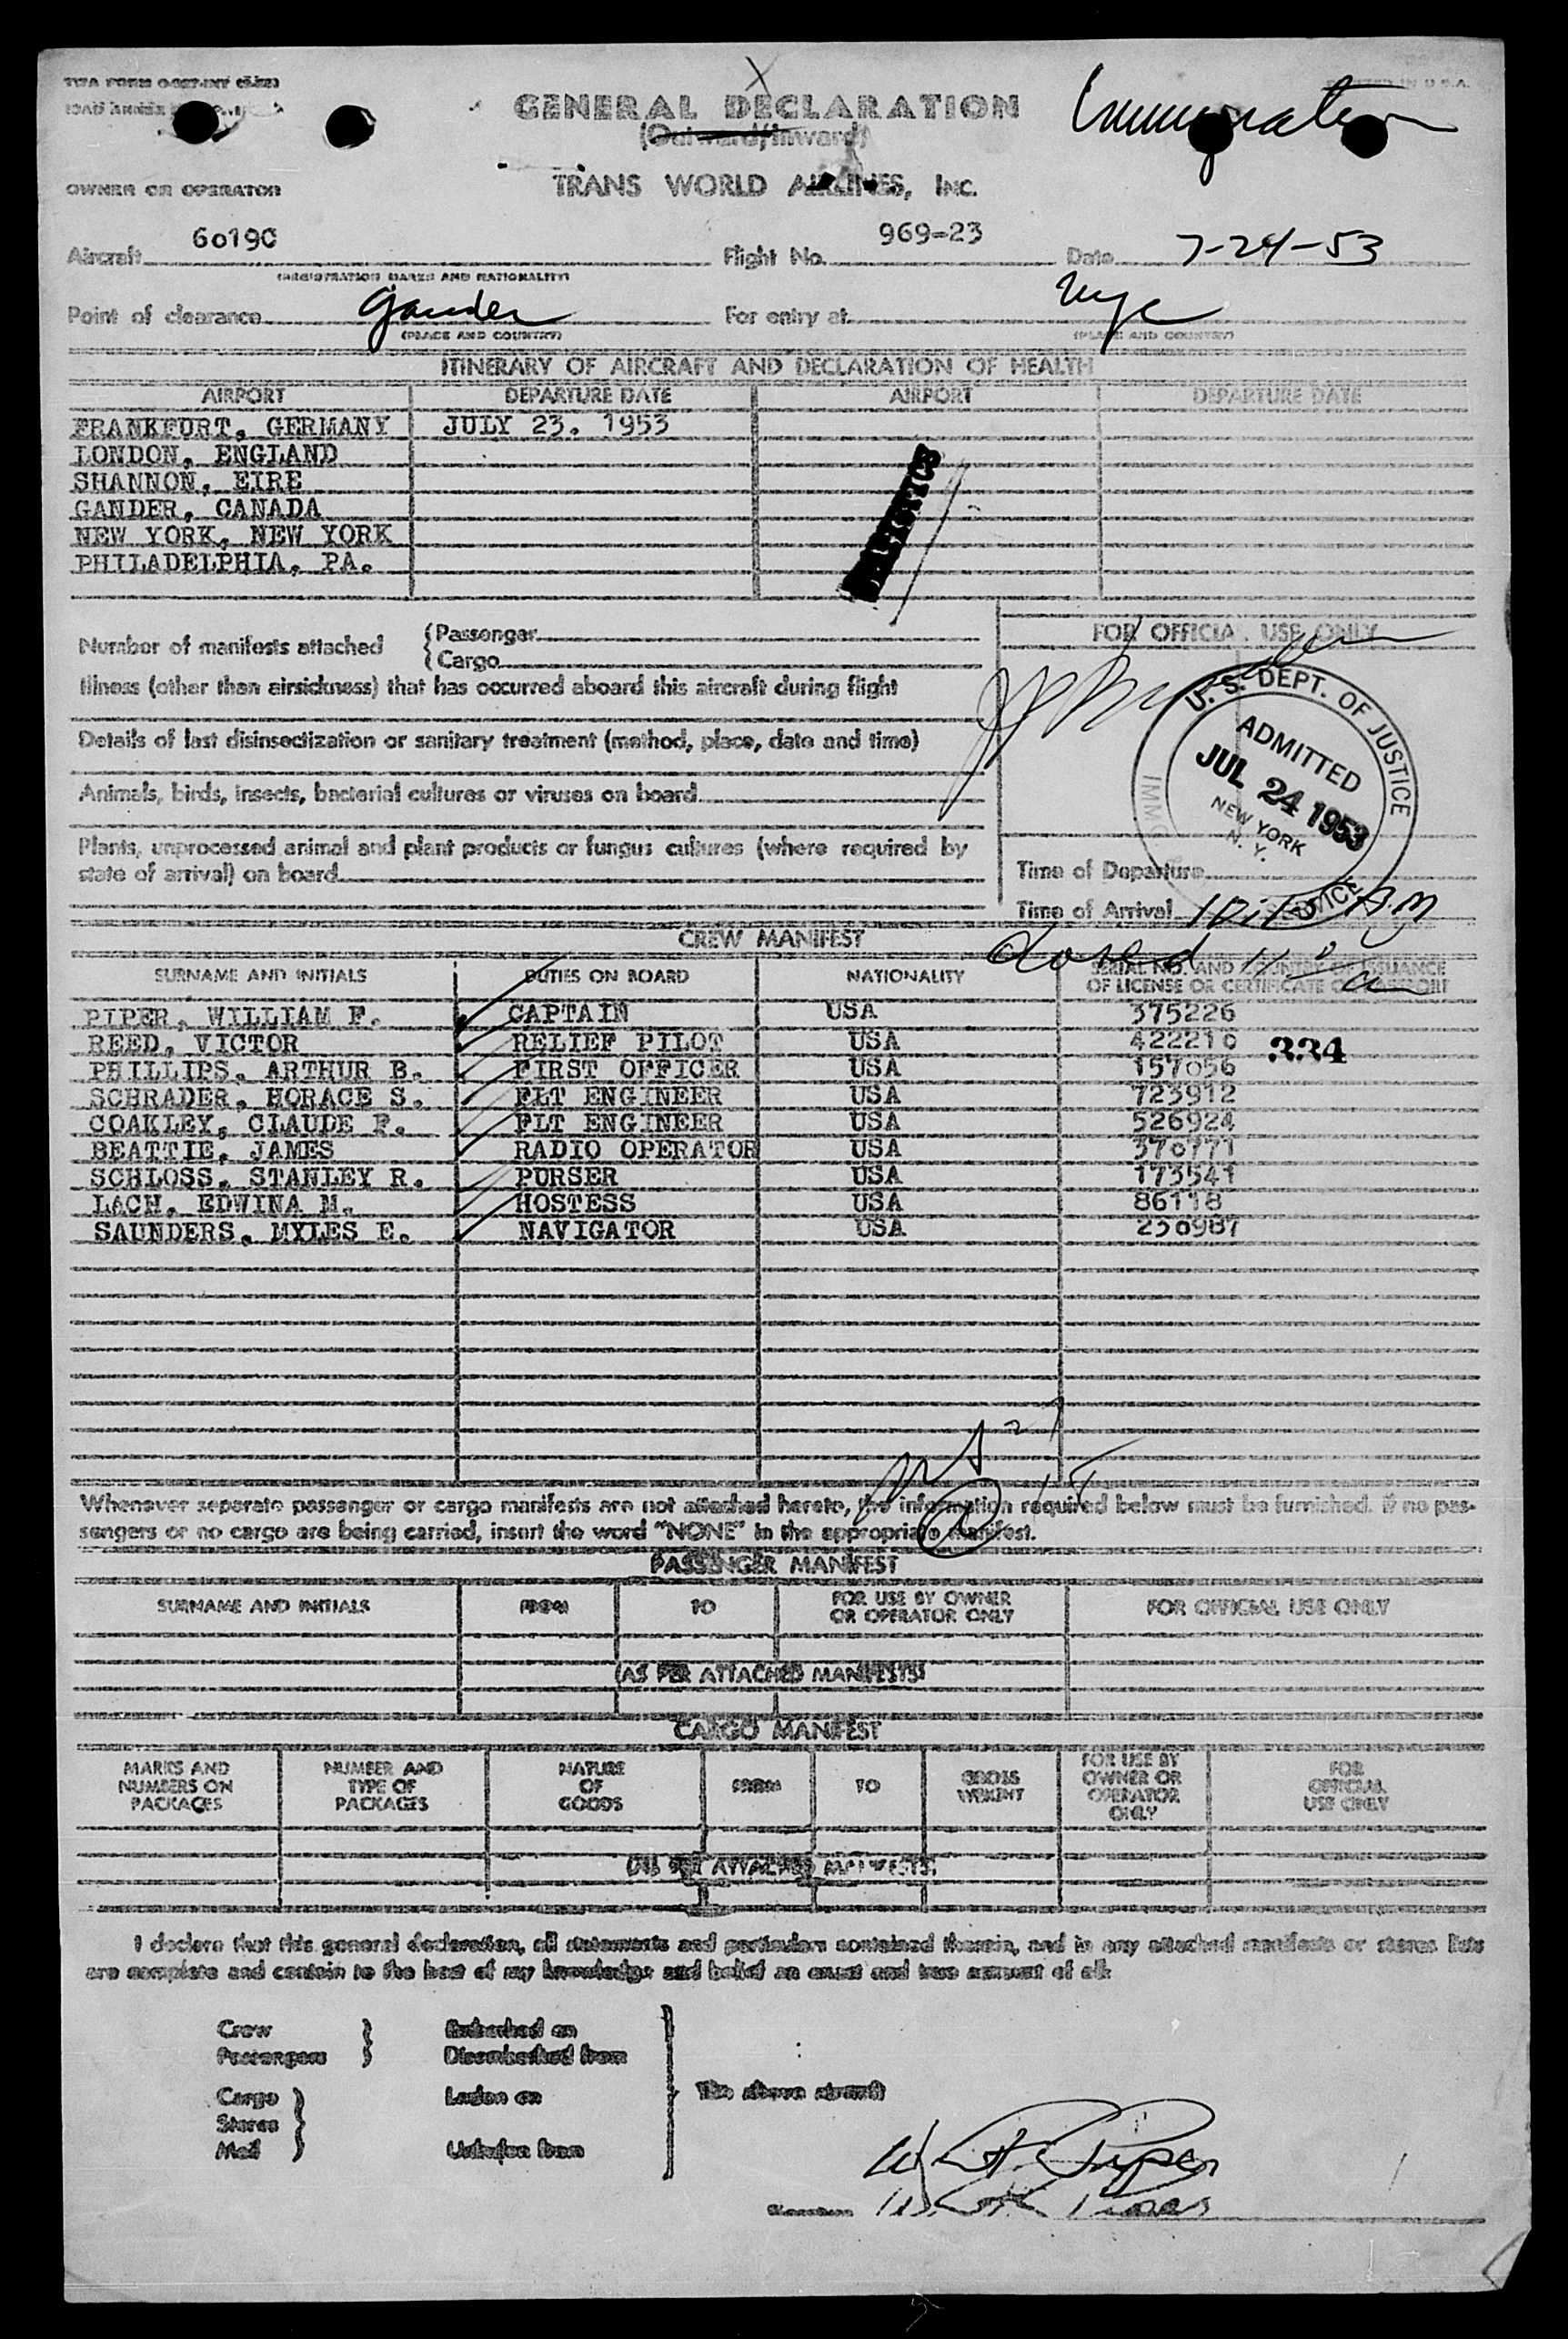 TWA FORM
GENERAL DECLARATION
(Outward/Inward)
Immigration
PRINTED IN U.S.A.
OWNER OR OPERATOR
TRANS WORLD AIRLINES, INC.
Aircraft 6019C Flight No. 969-23 Date 7-24-53
(REGISTRATION MARKS AND NATIONALITY)
Point of clearance Gander For entry at NYC
(PLACE AND COUNTRY) (PLACE AND COUNTRY)
ITINERARY OF AIRCRAFT AND DECLARATION OF HEALTH
AIRPORT DEPARTURE DATE AIRPORT DEPARTURE DATE
FRANKFURT, GERMANY JULY 23. 1953
LONDON, ENGLAND
SHANNON, EIRE
GANDER, CANADA
NEW YORK, NEW YORK
PHILADELPHIA, PA.
STATISTICS
Number of manifests attached { Passenger
{ Cargo
Illness (other than airsickness) that has occurred aboard this aircraft during flight
Details of last disinsectization or sanitary treatment (method, place, date and time)
Animals, birds, insects, bacterial cultures or viruses on board
Plants, unprocessed animal and plant products or fungus cultures (where required by
state of arrival) on board
FOR OFFICIAL USE ONLY
U. S. DEPT. OF JUSTICE
ADMITTED
JUL 24 1953
NEW YORK
N. Y.
IMM SERVICE
Time of Departure
Time of Arrival 10:15 A.M
closed 11
CREW MANIFEST
SURNAME AND INITIALS DUTIES ON BOARD NATIONALITY SERIAL NO. AND COUNTRY OF ISSUANCE
OF LICENSE OR CERTIFICATE OR PASSPORT
PIPER, WILLIAM F. CAPTAIN USA 375226
REED, VICTOR RELIEF PILOT USA 422210 334
PHILLIPS, ARTHUR B. FIRST OFFICER USA 157056
SCHRADER, HORACE S. FLT ENGINEER USA 723912
COAKLEY, CLAUDE F. FLT ENGINEER USA 526924
BEATTIE, JAMES RADIO OPERATOR USA 370771
SCHLOSS, STANLEY R. PURSER USA 173541
LACH, EDWINA M. HOSTESS USA 86118
SAUNDERS, MYLES E. NAVIGATOR USA 230987
Whenever separate passenger or cargo manifests are not attached hereto, the information required below must be furnished. If no pas-
sengers or no cargo are being carried, insert the word "NONE" in the appropriate manifest.
PASSENGER MANIFEST
SURNAME AND INITIALS FROM TO FOR USE BY OWNER
OR OPERATOR ONLY FOR OFFICIAL USE ONLY
(AS PER ATTACHED MANIFESTS)
CARGO MANIFEST
MARKS AND
NUMBERS ON
PACKAGES
NUMBER AND
TYPE OF
PACKAGES
NATURE
OF
GOODS
FROM
TO
GROSS
WEIGHT
FOR USE BY
OWNER OR
OPERATOR
ONLY
FOR
OFFICIAL
USE ONLY
(AS PER ATTACHED MANIFESTS)
I declare that this general declaration, all statements and particulars contained therein, and in any attached manifests or stores lists
are complete and contain to the best of my knowledge and belief an exact and true account of all:
Crew } Embarked on
Passengers } Disembarked from
Cargo } Laden on The above aircraft
Stores
Mail } Unladen from
W. F. Piper
Signature